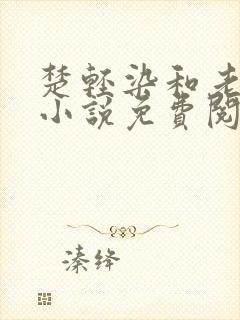 楚輕染和老
小說免費閱
溱绛